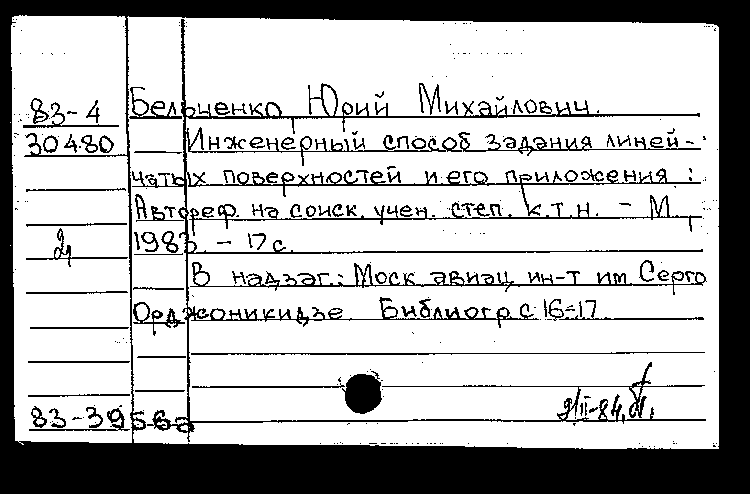 83-4 Бельченко, Юрий Михайлович.
30480 Инженерный способ задания линей-
чатых поверхностей и его приложения :
Автореф. на соиск. учен. степ. к.т.н. - М.,
1983. - 17 с.
В надзаг.: Моск. авиац. ин-т им. Серго
Орджоникидзе. Библиогр. с 16-17
83-3956а